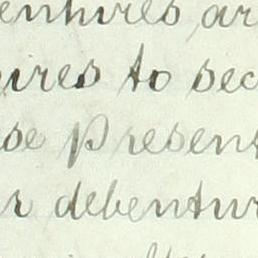 entures ar
ires to sec
se Presen
r debentur